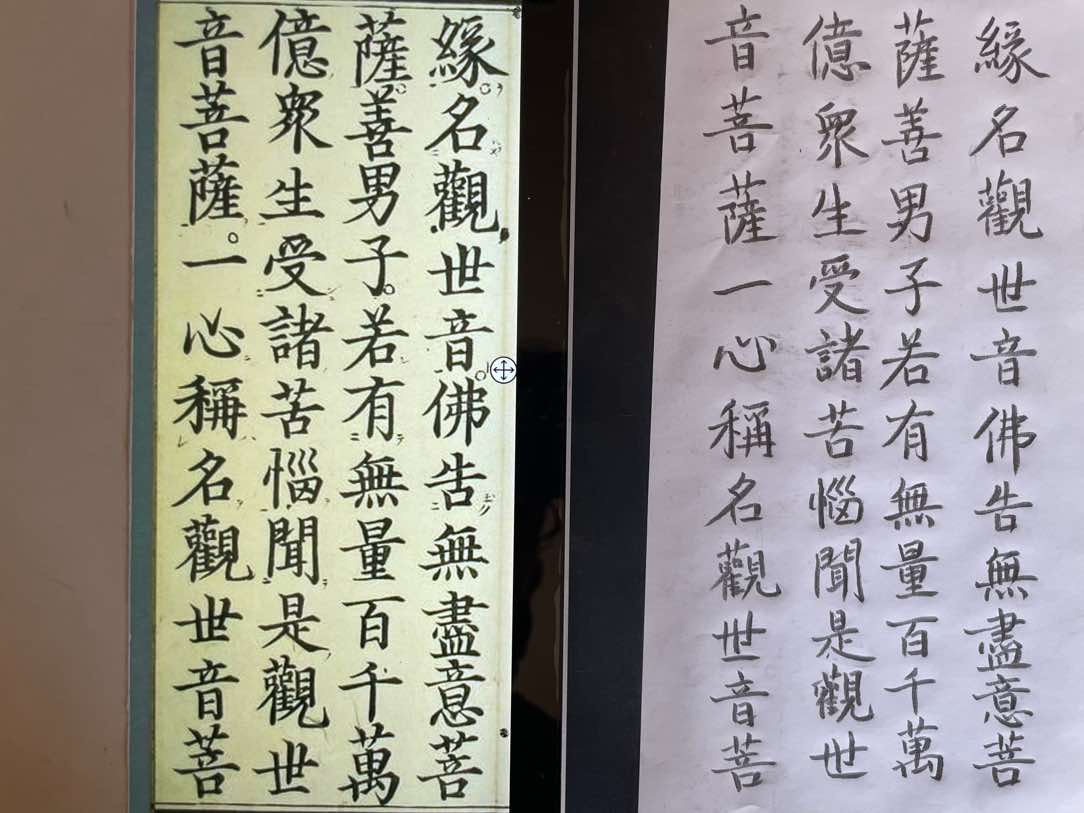 緣名觀世音佛告無盡意菩
薩善男子若有無量百千萬
億衆生受諸苦惱聞是觀世
音菩薩一心稱名觀世音菩
緣名觀世音佛告無盡意菩
薩善男子若有無量百千萬
億衆生受諸苦惱聞是觀世
音菩薩一心稱名觀世音菩